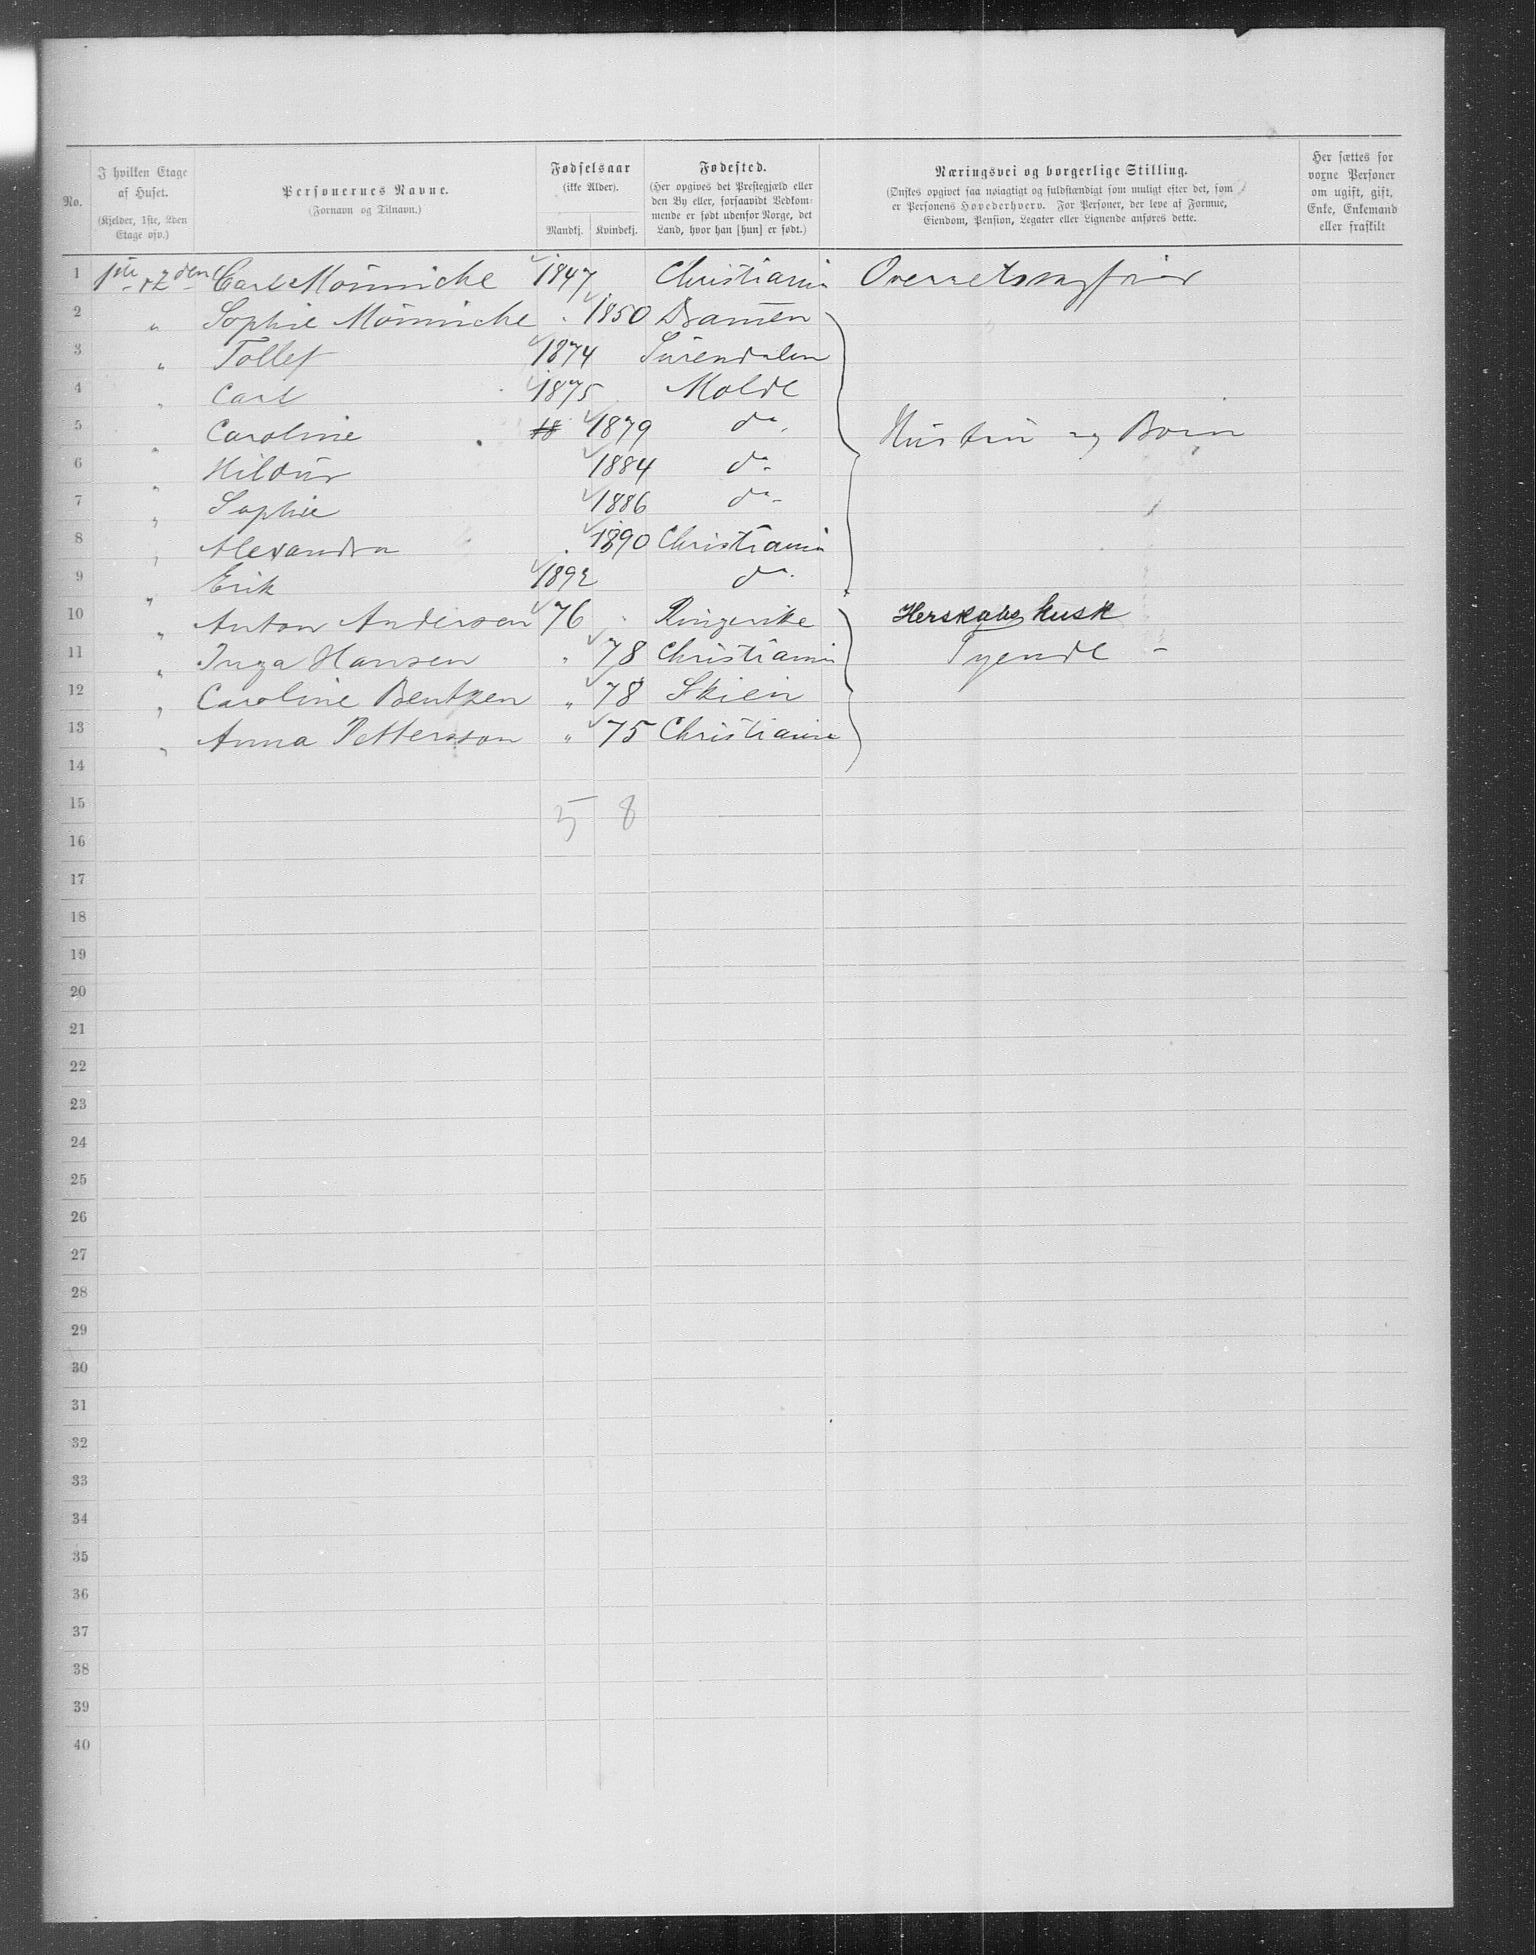 No. I hvilken Etage af Huset. (Kjelder, 1ste, 2den Etage osv.) Personernes Navne. (Fornavn og Tilnavn.) Fødselsaar (ikke Alder). Mandkj. Kvindekj. Fødested. (Her opgives det Prestegjæld eller den By eller, forsaavidt Vedkommende er født udenfor Norge, det Land, hvor han [hun] er født.) Næringsvei og borgerlige Stilling. (Ønskes opgivet saa nøiagtigt og fuldstændigt som muligt efter det, som er Personens Hovederhverv. For Personer, der leve af Formue, Eiendom, Pension, Legater eller Lignende anføres dette. Her sættes for voxne Personer om ugift, gift, Enke, Enkemand eller fraskilt
1 1ste & 2den Carl Mönniche 1847 Christiania Overretssagfører
2 " Sophie Mönniche " 1850 Dramen
3 " Tollef 1874 Surendalen
4 " Carl 1875 Molde
5 " Caroline 18 1879 do. Hustru og Børn
6 " Hildur 1884 do
7 " Sophie 1886 do
8 " Alexandra 1890 Christiania
9 " Erik 1892 do.
10 " Anton Andersen 76 " Ringerike Herskabs kusk
11 " Inga Hansen " 78 Christiania Tyende -
12 " Caroline Bentzen " 78 Skien
13 " Anna Pettersson " 75 Christiania
14
15 5 8
16
17
18
19
20
21
22
23
24
25
26
27
28
29
30
31
32
33
34
35
36
37
38
39
40